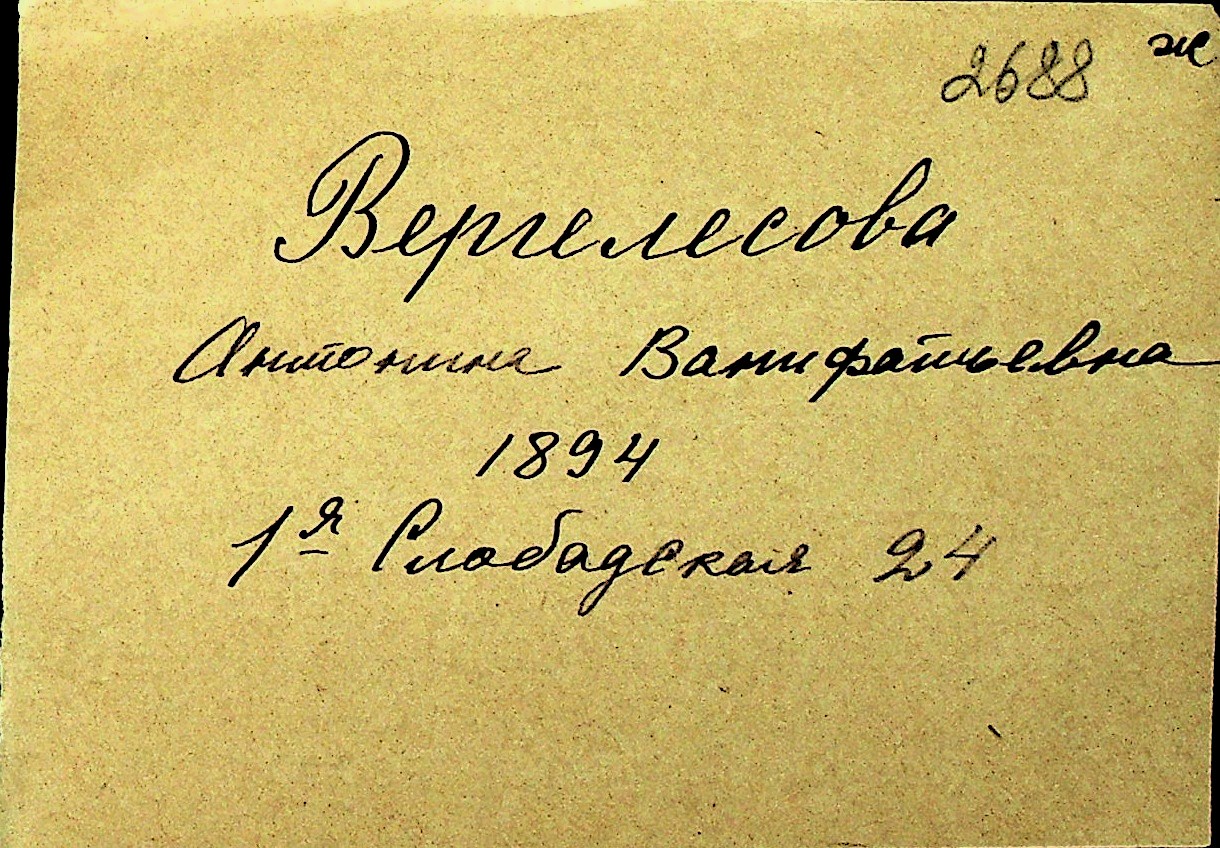 2688 ж
Вергелесова
Антонина Ванифатьевна
1894
1я Слабадская 24